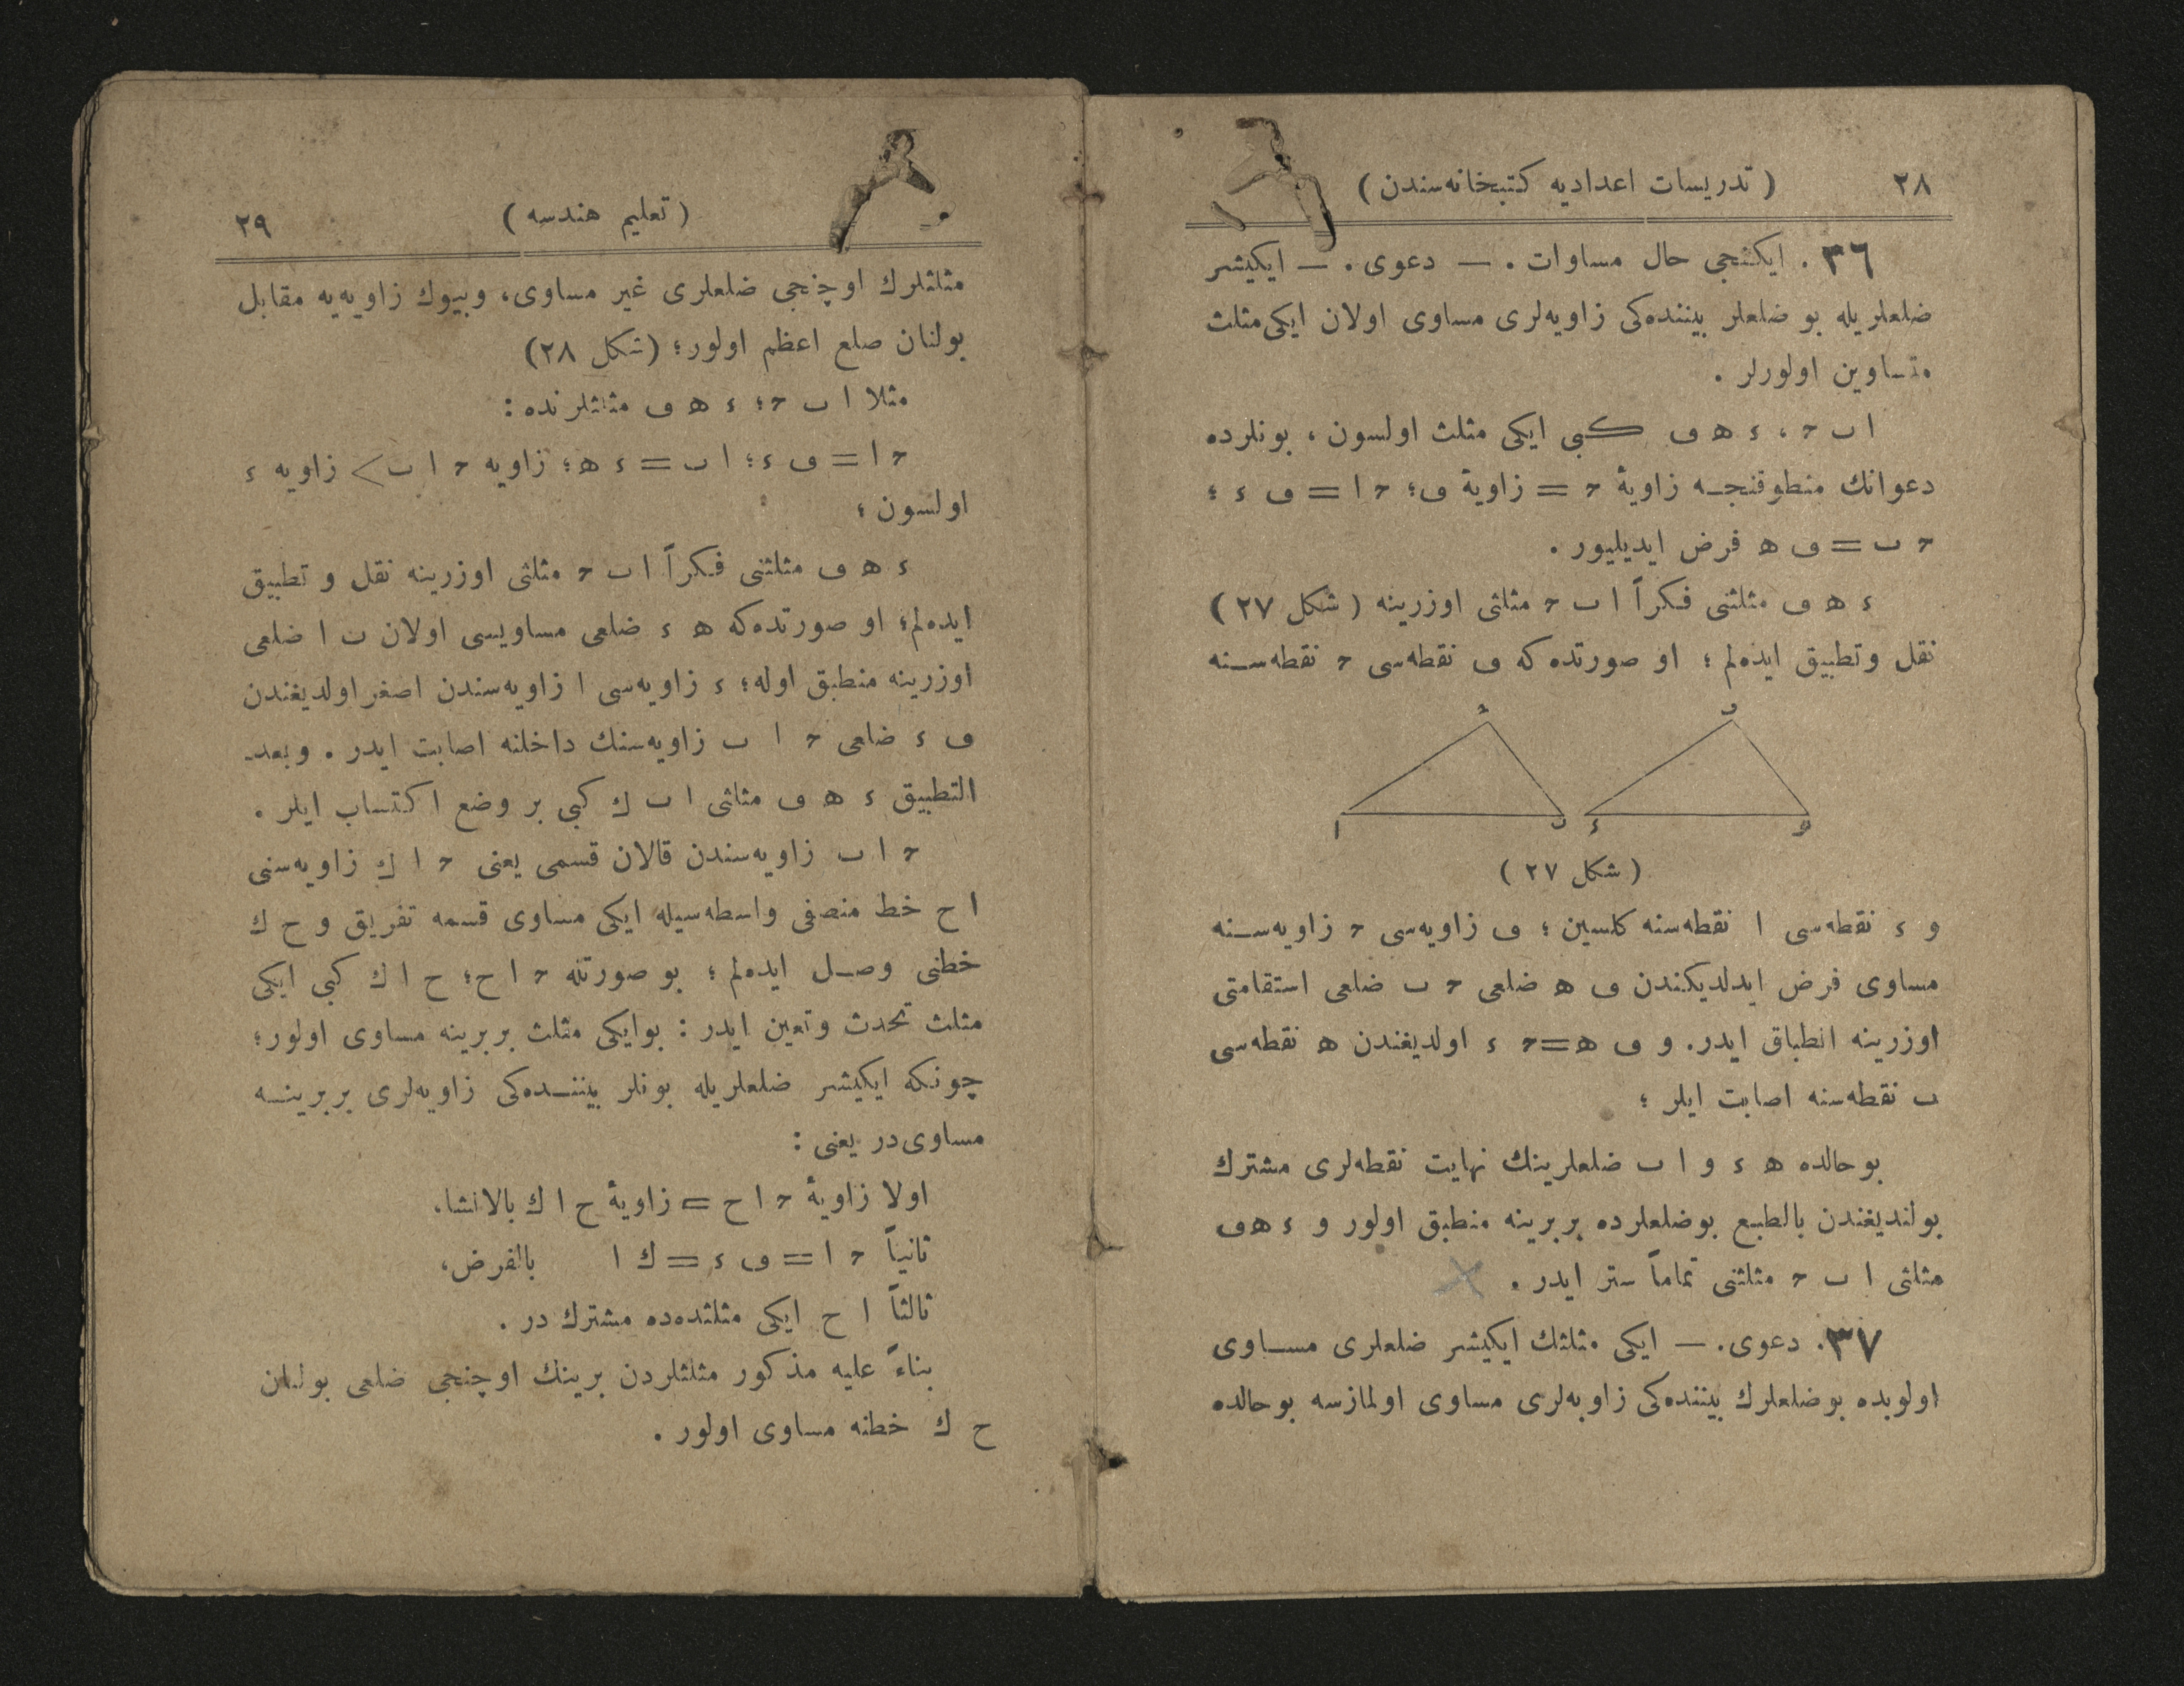 ٢٨ ( تدريسات اعداديه كتبخانه‌سندن )
٣٦ . ايكنجى حال مساوات . — دعوى . — ايكيشر
ضلعلريله بو ضلعلر بيننده‌كى زاويه‌لرى مساوى اولان ايكى مثلث
متساوين اولورلر .
ا ب ح ، ء ه ف كبى ايكى مثلث اولسون ، بونلرده
دعوانك منطوقنجه زاويهٔ ح = زاويهٔ ف ؛ ح ا = ف ء ؛
ح ب = ف ه فرض ايديليور .
ء ه ف مثلثنى فكراً ا ب ح مثلثى اوزرينه ( شكل ٢٧ )
نقل وتطبيق ايده‌لم ؛ او صورتده كه ف نقطه‌سى ح نقطه‌سنه
ح ف
ا ب ء ه
( شكل ٢٧ )
و ء نقطه‌سى ا نقطه‌سنه كلسين ؛ ف زاويه‌سى ح زاويه‌سنه
مساوى فرض ايدلديكندن ف ه ضلعى ح ب ضلعى استقامتى
اوزرينه انطباق ايدر . و ف ه = ح ء اولديغندن ه نقطه‌سى
ب نقطه‌سنه اصابت ايلر ؛
بوحالده ه ء و ا ب ضلعلرينك نهايت نقطه‌لرى مشترك
بولنديغندن بالطبع بوضلعلرده بربرينه منطبق اولور و ء ه ف
مثلثى ا ب ح مثلثنى تماماً ستر ايدر .
٣٧ . دعوى . — ايكى مثلثك ايكيشر ضلعلرى مساوى
اولوبده بوضلعلرك بيننده‌كى زاويه‌لرى مساوى اولمازسه بوحالده
( تعليم هندسه ) ٢٩
مثلثلرك اوچنجى ضلعلرى غير مساوى، وبيوك زاويه‌يه مقابل
بولنان ضلع اعظم اولور؛ (شكل ٢٨)
مثلا ا ب ح ؛ ء ه ف مثلثلرنده :
ح ا = ف ء ؛ ا ب = ء ه ؛ زاويه ح ا ب > زاويه ء
اولسون ؛
ء ه ف مثلثنى فكراً ا ب ح مثلثى اوزرينه نقل و تطبيق
ايده‌لم؛ او صورتده‌كه ه ء ضلعى مساويسى اولان ب ا ضلعى
اوزرينه منطبق اوله؛ ء زاويه‌سى ا زاويه‌سندن اصغر اولديغندن
ف ء ضلعى ح ا ب زاويه‌سنك داخلنه اصابت ايدر . وبعد
التطبيق ء ه ف مثلثى ا ب ك كبى بر وضع اكتساب ايلر .
ح ا ب زاويه‌سندن قالان قسمى يعنى ح ا ك زاويه‌سنى
ا ح خط منصفى واسطه‌سيله ايكى مساوى قسمه تفريق و ح ك
خطنى وصل ايده‌لم ؛ بو صورتله ح ا ح ؛ ح ا ك كبى ايكى
مثلث تحدث وتعين ايدر : بوايكى مثلث بربرينه مساوى اولور؛
چونكه ايكيشر ضلعلريله بونلر بيننده‌كى زاويه‌لرى بربرينه
مساوى‌در يعنى :
اولا زاويهٔ ح ا ح = زاويهٔ ح ا ك بالانشا،
ثانياً ح ا = ف ء = ك ا بالفرض،
ثالثاً ا ح ايكى مثلثده‌ده مشترك در .
بناءً عليه مذكور مثلثلردن برينك اوچنجى ضلعى بولنان
ح ك خطنه مساوى اولور .